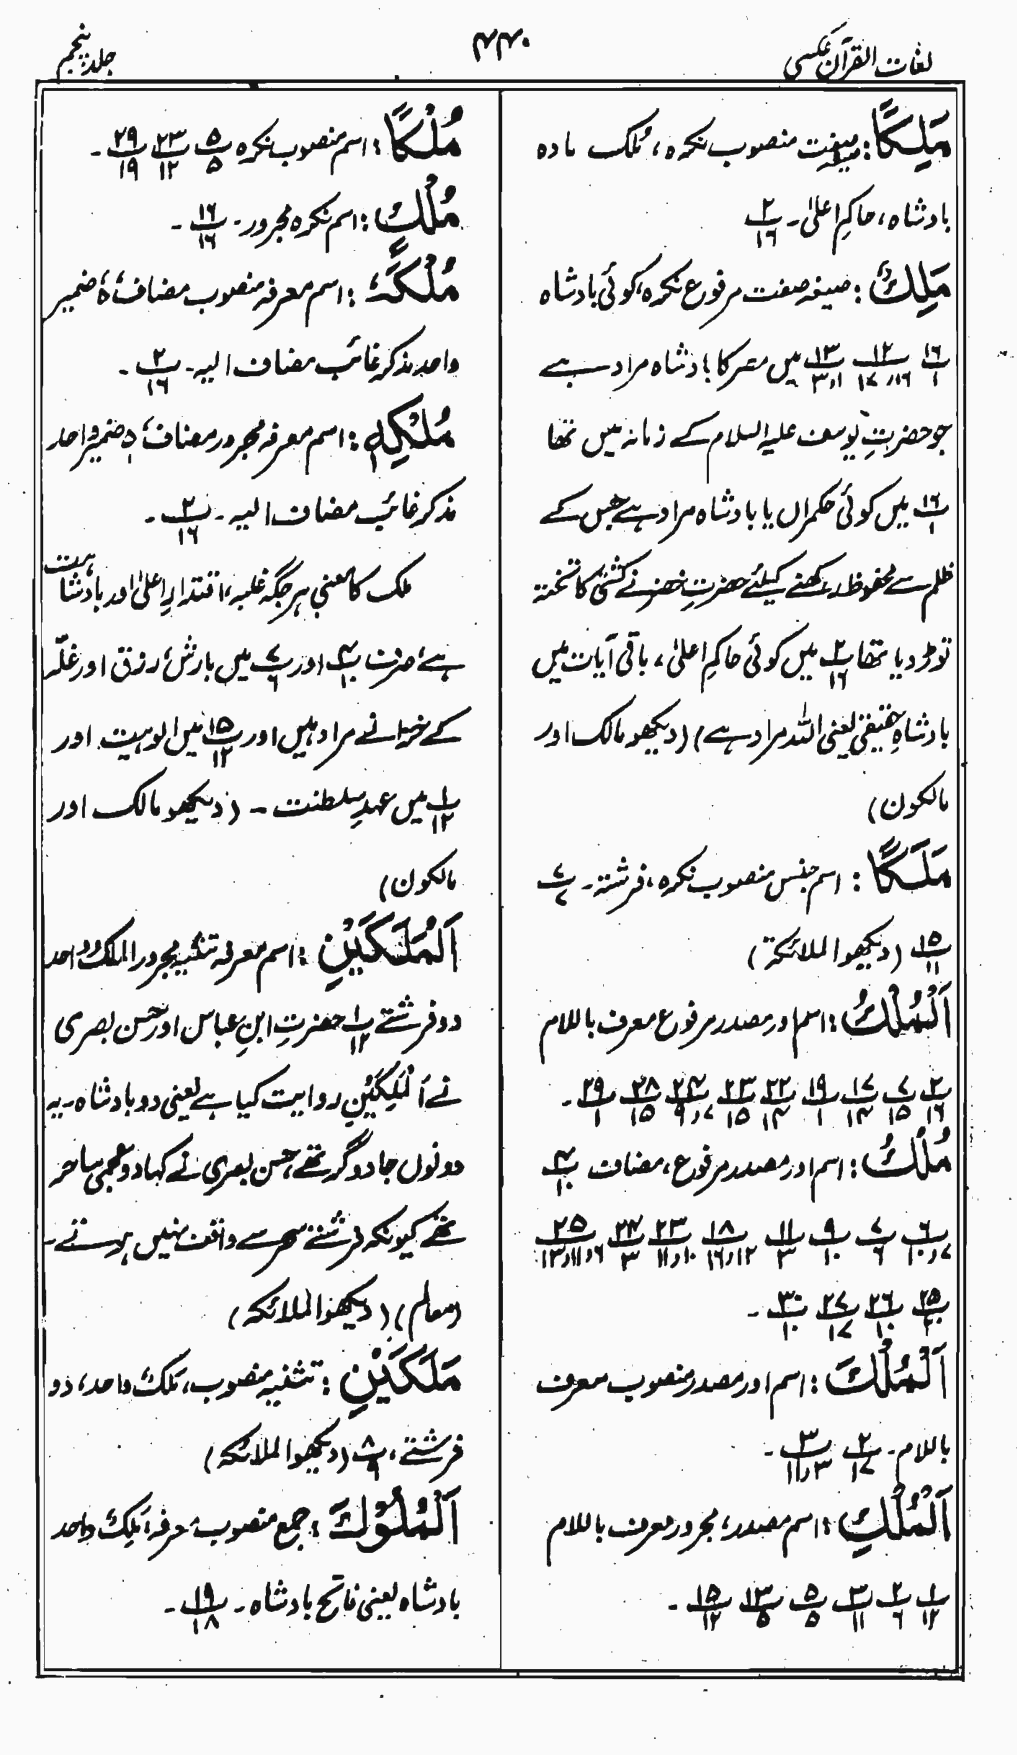 لغات القرآن عکسی
۴۴۰
جلد پنجم
مَلِكًا: صیغہ صفت منصوب نکرہ، مُلک مادہ
بادشاہ، حاکمِ اعلیٰ۔ ۲/۱۶
مَلِكٌ: صیغہ صفت مرفوع نکرہ، کوئی بادشاہ
۱۶/۱ ۱۲/۱۶،۱۷ ۱۳/۱،۳ میں مصر کا بادشاہ مراد ہے
جو حضرتِ یوسف علیہ السلام کے زمانہ میں تھا
۱۶/۱ میں کوئی حکمراں یا بادشاہ مراد ہے جس کے
ظلم سے محفوظ رکھنے کیلئے حضرتِ خضر نے کشتی کا تختہ
توڑ دیا تھا ۲/۱۶ میں کوئی حاکمِ اعلیٰ، باقی آیات میں
بادشاہِ حقیقی یعنی اللہ مراد ہے) (دیکھو مالک اور
مالکون)
مَلَكًا: اسم جنس منصوب نکرہ، فرشتہ۔ ۷/۷
۱۵/۱۱ (دیکھو الملائکۃ)
اَلْمُلْكُ: اسم اور مصدر مرفوع معرف باللام
۲/۱۶ ۷/۱۵ ۱۷/۱۴ ۱۹/۱ ۲۲/۱۴ ۲۳/۱۵ ۲۴/۷،۹ ۲۸/۱۵ ۲۹/۱۔
مُلْكُ: اسم اور مصدر مرفوع، مضاف ۴/۱۰
۶/۷،۱۰ ۷/۶ ۹/۱۰ ۱۱/۳ ۱۸/۱۲،۱۶ ۲۳/۱۰،۱۱ ۲۴/۳ ۲۵/۶،۱۱،۱۳
۲۵/۲۰ ۲۶/۱۰ ۲۷/۱۷ ۳۰/۱۰۔
اَلْمُلْكَ: اسم اور مصدر منصوب معرف
باللام۔ ۲/۱۷ ۳/۳،۱۱۔
اَلْمُلْكِ: اسم مصدر، مجرور معرف باللام
۱/۱۲ ۲/۶ ۳/۱۱ ۵/۵ ۱۳/۵ ۱۵/۱۲۔
مُلْكًا: اسم منصوب نکرہ ۵/۵ ۲۳/۱۲ ۲۹/۱۹۔
مُلْكٍ: اسم نکرہ مجرور۔ ۱۶/۱۶۔
مُلْكَهٗ: اسم معرفہ منصوب مضاف، ہٗ ضمیر
واحد مذکر غائب مضاف الیہ۔ ۲/۱۶۔
مُلْكِهٖ: اسم معرفہ مجرور مضاف، ہٖ ضمیر واحد
مذکر غائب مضاف الیہ۔ ۲/۱۶۔
ملک کا معنی ہر جگہ غلبہ، اقتدارِ اعلیٰ اور بادشاہت
ہے، صرف ۴/۱۰ اور ۷/۶ میں بارش، رزق اور غلّہ
کے خزانے مراد ہیں اور ۱۵/۱۲ میں الوہیت اور
۱/۱۲ میں عہدِ سلطنت ۔ (دیکھو مالک اور
مالکون)
اَلْمَلَكَيْنِ: اسم معرفہ تثنیہ مجرور الملک واحد
دو فرشتے ۱/۱۲ حضرتِ ابنِ عباس اور حسن بصری
نے اَلْمَلِكَيْنِ روایت کیا ہے یعنی دو بادشاہ۔ یہ
دونوں جادوگر تھے، حسن بصری نے کہا دو عجمی ساحر
تھے کیونکہ فرشتے سحر سے واقف نہیں ہوتے۔
(معالم) (دیکھو الملائکہ)
مَلَكَيْنِ: تثنیہ منصوب، مَلَک واحد، دو
فرشتے، ۸/۹ (دیکھو الملائکہ)
اَلْمُلُوْكَ: جمع منصوب معرفہ، مَلِک واحد
بادشاہ یعنی فاتح بادشاہ۔ ۱۹/۱۸۔